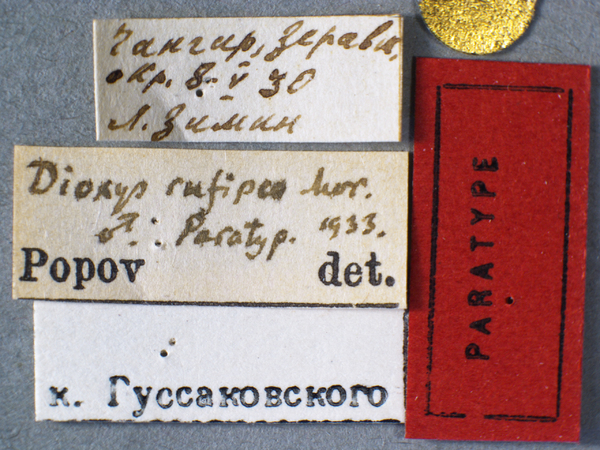 Чангир, Зеравш.
окр. 8 V 30
Л. Зимин
Dioxys rufipes Mor.
♂. Paratyp. 1933.
Popov det.
к. Гуссаковского
PARATYPE